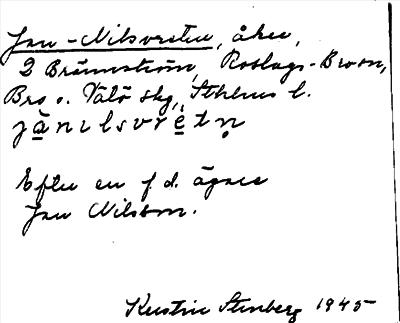 Jan-Nilsvreten, åker,
2 Brännström, Roslags-Bro sn,
Bro o. Vätö skg, Sthlms l.
jạ̄nılsvrētṇ
Efter en f.d. ägare
Jan Nilsson.
Kerstin Stenberg 1945